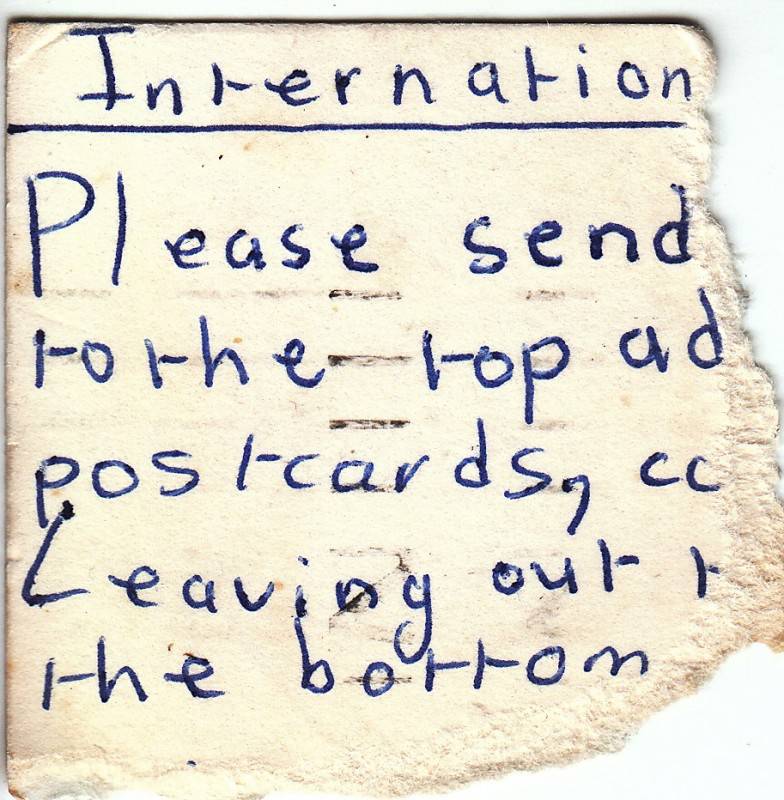 Internation
Please send
to the top ad
postcards, cc
Leaving out t
the bottom